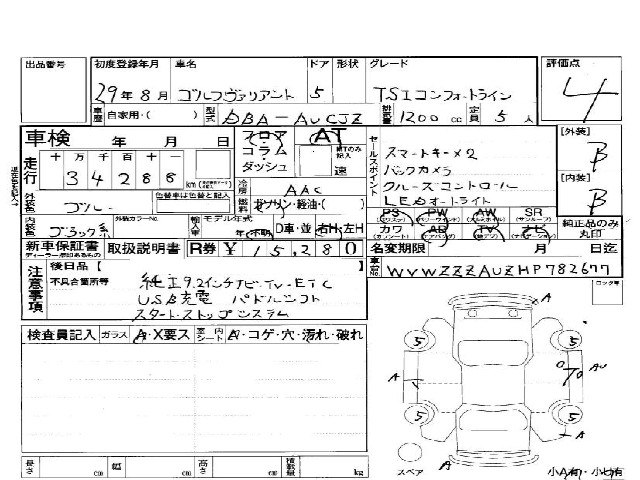 出品番号 初度登録年月 車名 ドア 形状 グレード 評価点
29年8月 ゴルフヴァリアント 5 TSIコンフォートライン 4
車歴 自家用・( ) 型式 DBA-AUCJZ 排気量 1200 cc 定員 5 人
車検 年 月 日 フロア コラム ダッシュ AT 速 セールスポイント [外装] B
走行 十 万 千 百 十 一
34288 km
スマートキー×2
バックカメラ
クルーズコントロール
LEDオートライト
冷房 AAC [内装] B
外装色 ブルー 色替車は色替と記入 燃料 ガソリン・軽油・( )
PS PW AW SR
内装色 ブラック系 外装カラーNo. 輸入車 モデル年式 年・不明 D車・並 右H・左H カワ AB TV ナビ 純正品のみ丸印
新車保証書 取扱説明書 R券 ¥15,280 名変期限 月 日迄
ディーラー添印あるもの
注意事項 後日品 車台No. WVWZZZAUZHP782677
不具合箇所等 純正9.2インチナビ・TV・ETC
USB充電 パドルシフト
スタート・ストップシステム
検査員記入 ガラス A・X要ス 室内シート A・コゲ・穴・汚れ・破れ
A
5 5
A AU
5 5
A
A
スペア
長さ cm 幅 cm 高さ cm 積載量 kg